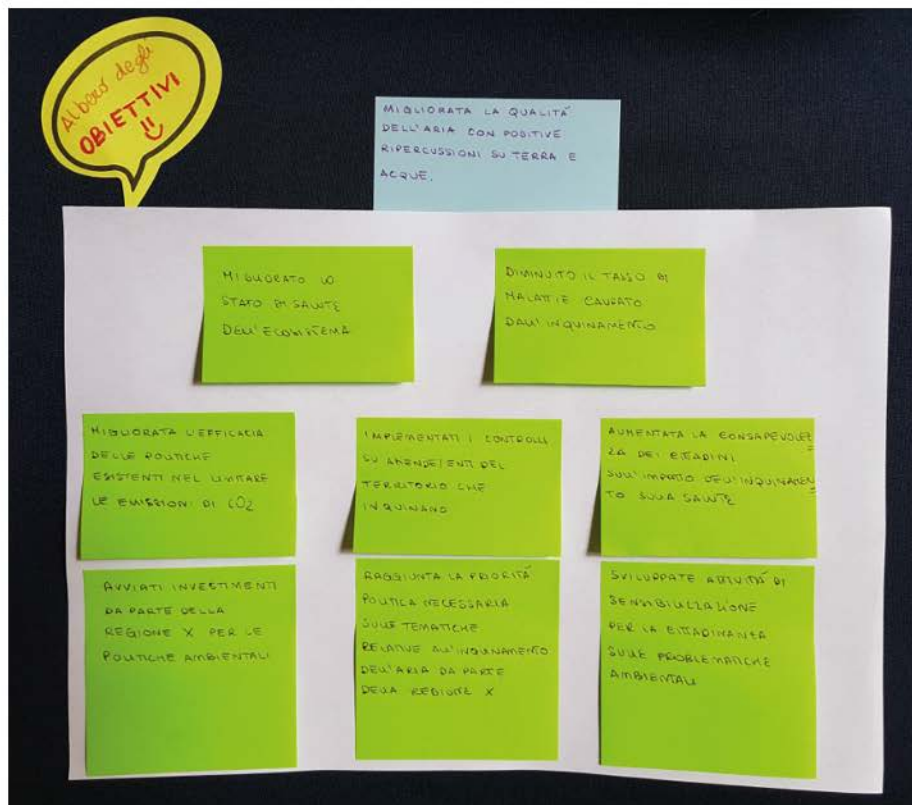 Albero degli
OBIETTIVI
MIGLIORATA LA QUALITÁ
DELL'ARIA CON POSITIVE
RIPERCUSSIONI SU TERRA E
ACQUE.
MIGLIORATO LO
STATO DI SALUTE
DELL'ECOSISTEMA
DIMINUITO IL TASSO DI
MALATTIE CAUSATO
DALL'INQUINAMENTO
MIGLIORATA L'EFFICACIA
DELLE POLITICHE
ESISTENTI NEL LIMITARE
LE EMISSIONI DI CO2
IMPLEMENTATI I CONTROLLI
SU AZIENDE/ENTI DEL
TERRITORIO CHE
INQUINANO
AUMENTATA LA CONSAPEVOLEZ=
ZA DEI CITTADINI
SULL'IMPATTO DELL'INQUINAMEN=
TO SULLA SALUTE
AVVIATI INVESTIMENTI
DA PARTE DELLA
REGIONE X PER LE
POLITICHE AMBIENTALI
RAGGIUNTA LA PRIORITÁ
POLITICA NECESSARIA
SULLE TEMATICHE
RELATIVE ALL'INQUINAMENTO
DELL'ARIA DA PARTE
DELLA REGIONE X
SVILUPPATE ATTIVITÁ DI
SENSIBILIZZAZIONE
PER LA CITTADINANZA
SULLE PROBLEMATICHE
AMBIENTALI